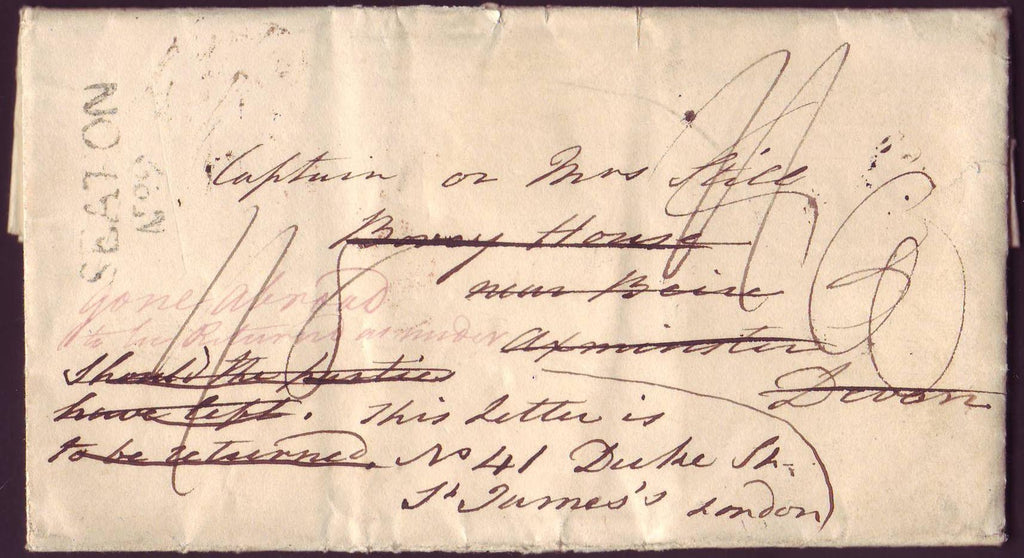 SEATON
No 3
Captain or Mrs
Bovey House
near Beire
Axminster
Devon
gone Abroad
to be Returned as under
Should the parties
have left. This Letter is
to be returned. No 41 Duke St.
St James's London